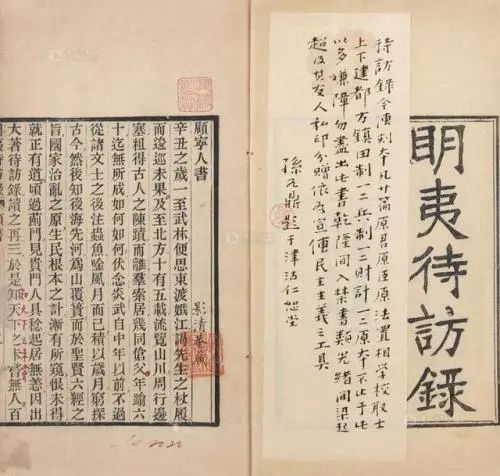 明夷待訪錄
待訪錄今傳刻本凡廿篇原君原臣原法置相學校取士
上下建都方鎮田制一二三兵制一二三財計一二三原本不止于此
以多嫌障勿盡出此書乾隆間入禁書類光緒間梁起
超及其友人私印分贈依爲宣傳民主主義之工具
孫元鼎題于津沽仁恕堂
顧寧人書
辛丑之歲一至武林便思東渡娥江謁先生之杖履
而逡巡未果及至北方十有五載流覽山川周行邊
塞粗得古人之陳蹟而離羣索居幾同傖父年踰六
十迄無所成如何如何伏念炎武自中年以前不過
從諸文士之後注蟲魚唫風月而已積以歲月窮探
古今然後知後海先河爲山覆簣而於聖賢六經之
旨國家治亂之原生民根本之計漸有所窺恨未得
就正有道頃過薊門見貴門人具稔起居無恙因出
大著待訪錄讀之再三於是知天下之未嘗無人百